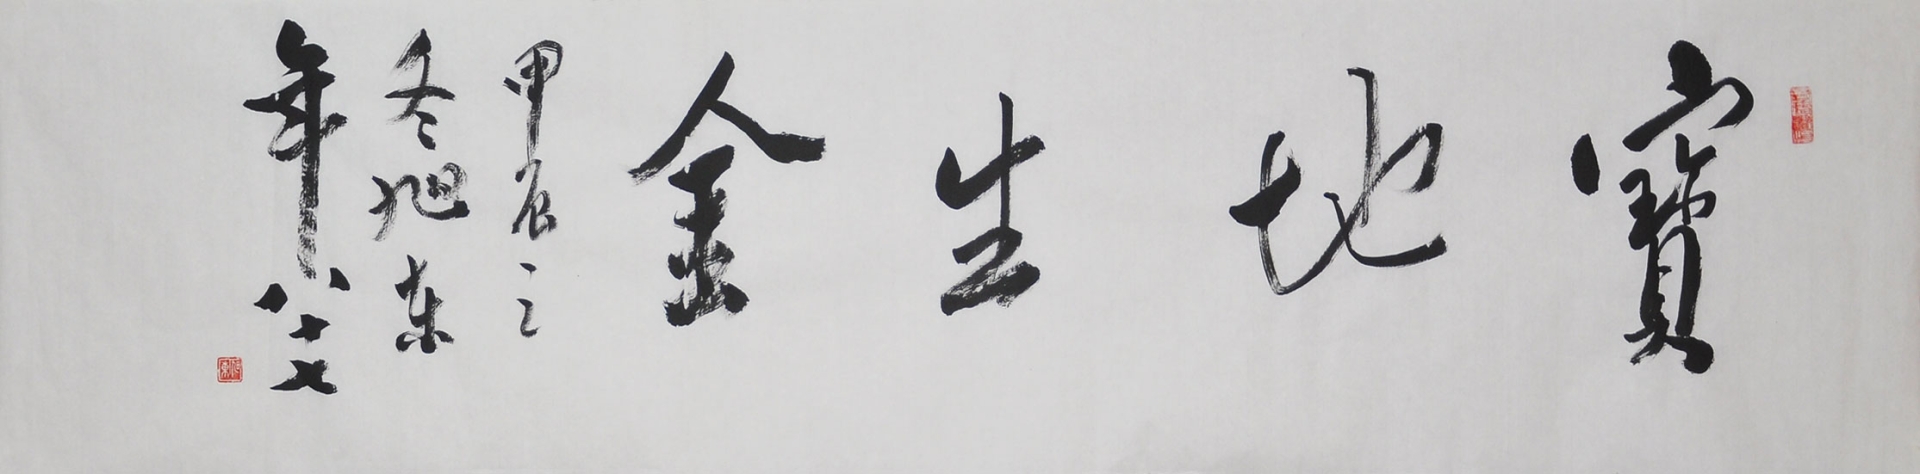 寶地生金
甲辰之
冬旭东
年八十七